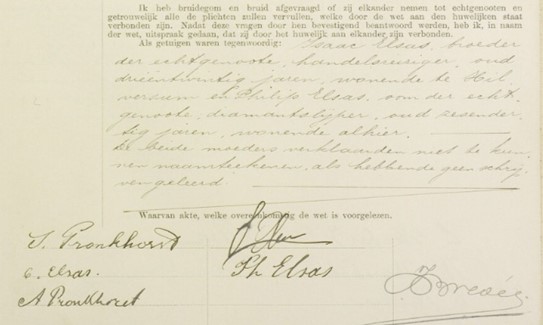 Ik heb bruidegom en bruid afgevraagd of zij elkander nemen tot echtgenooten en
getrouwelijk alle de plichten zullen vervullen, welke door de wet aan den huwelijken staat
verbonden zijn. Nadat deze vragen door hen bevestigend beantwoord werden, heb ik, in naam
der wet, uitspraak gedaan, dat zij door het huwelijk aan elkander zijn verbonden.
Als getuigen waren tegenwoordig: Isaac Elsas, broeder
der echtgenoote, handelsreiziger, oud
drieëntwintig jaren, wonende te Hil,
versum en Philip Elsas, oom der echt,
genoote, diamantslyper, oud zesender,
tig jaren, wonende alhier.
De beide moeders verklaarden niet te kun,
nen naamteekenen, als hebbende geen schrij,
ven geleerd.
Waarvan akte, welke overeenkomstig de wet is voorgelezen.
S. Pronkhorst
Ph Elsas
c. Elsas.
A Pronkhorst